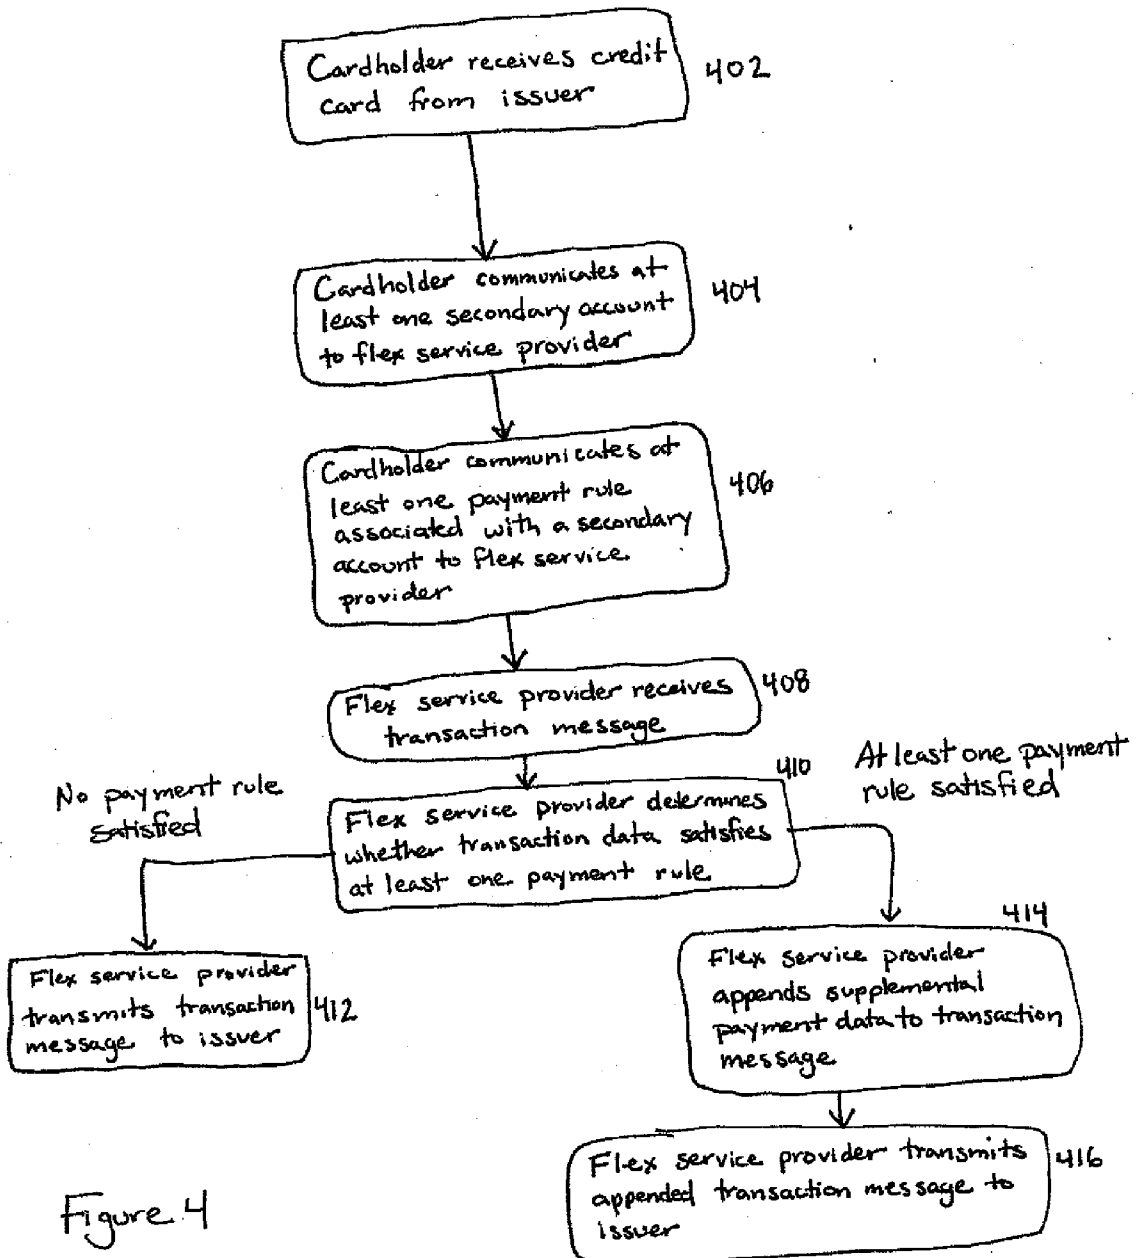 Cardholder receives credit
card from issuer
402
Cardholder communicates at
least one secondary account
to flex service provider
404
Cardholder communicates at
least one payment rule
associated with a secondary
account to flex service
provider
406
Flex service provider receives
transaction message
408
No payment rule
satisfied
410
At least one payment
rule satisfied
Flex service provider determines
whether transaction data satisfies
at least one payment rule
Flex service provider
transmits transaction
message to issuer
412
414
Flex service provider
appends supplemental
payment data to transaction
message
Flex service provider transmits
appended transaction message to
issuer
416
Figure 4